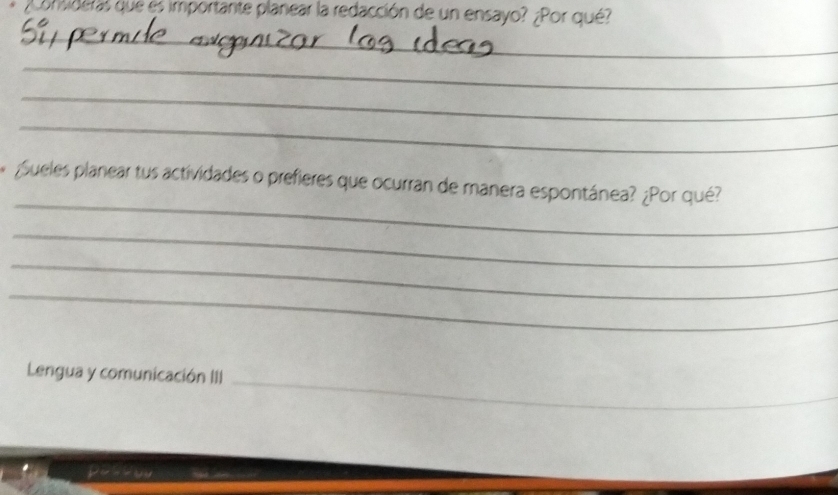 ¿Consideras que es importante planear la redacción de un ensayo? ¿Por qué?
Sí, permite organizar las ideas
¿Sueles planear tus actividades o prefieres que ocurran de manera espontánea? ¿Por qué?
Lengua y comunicación III